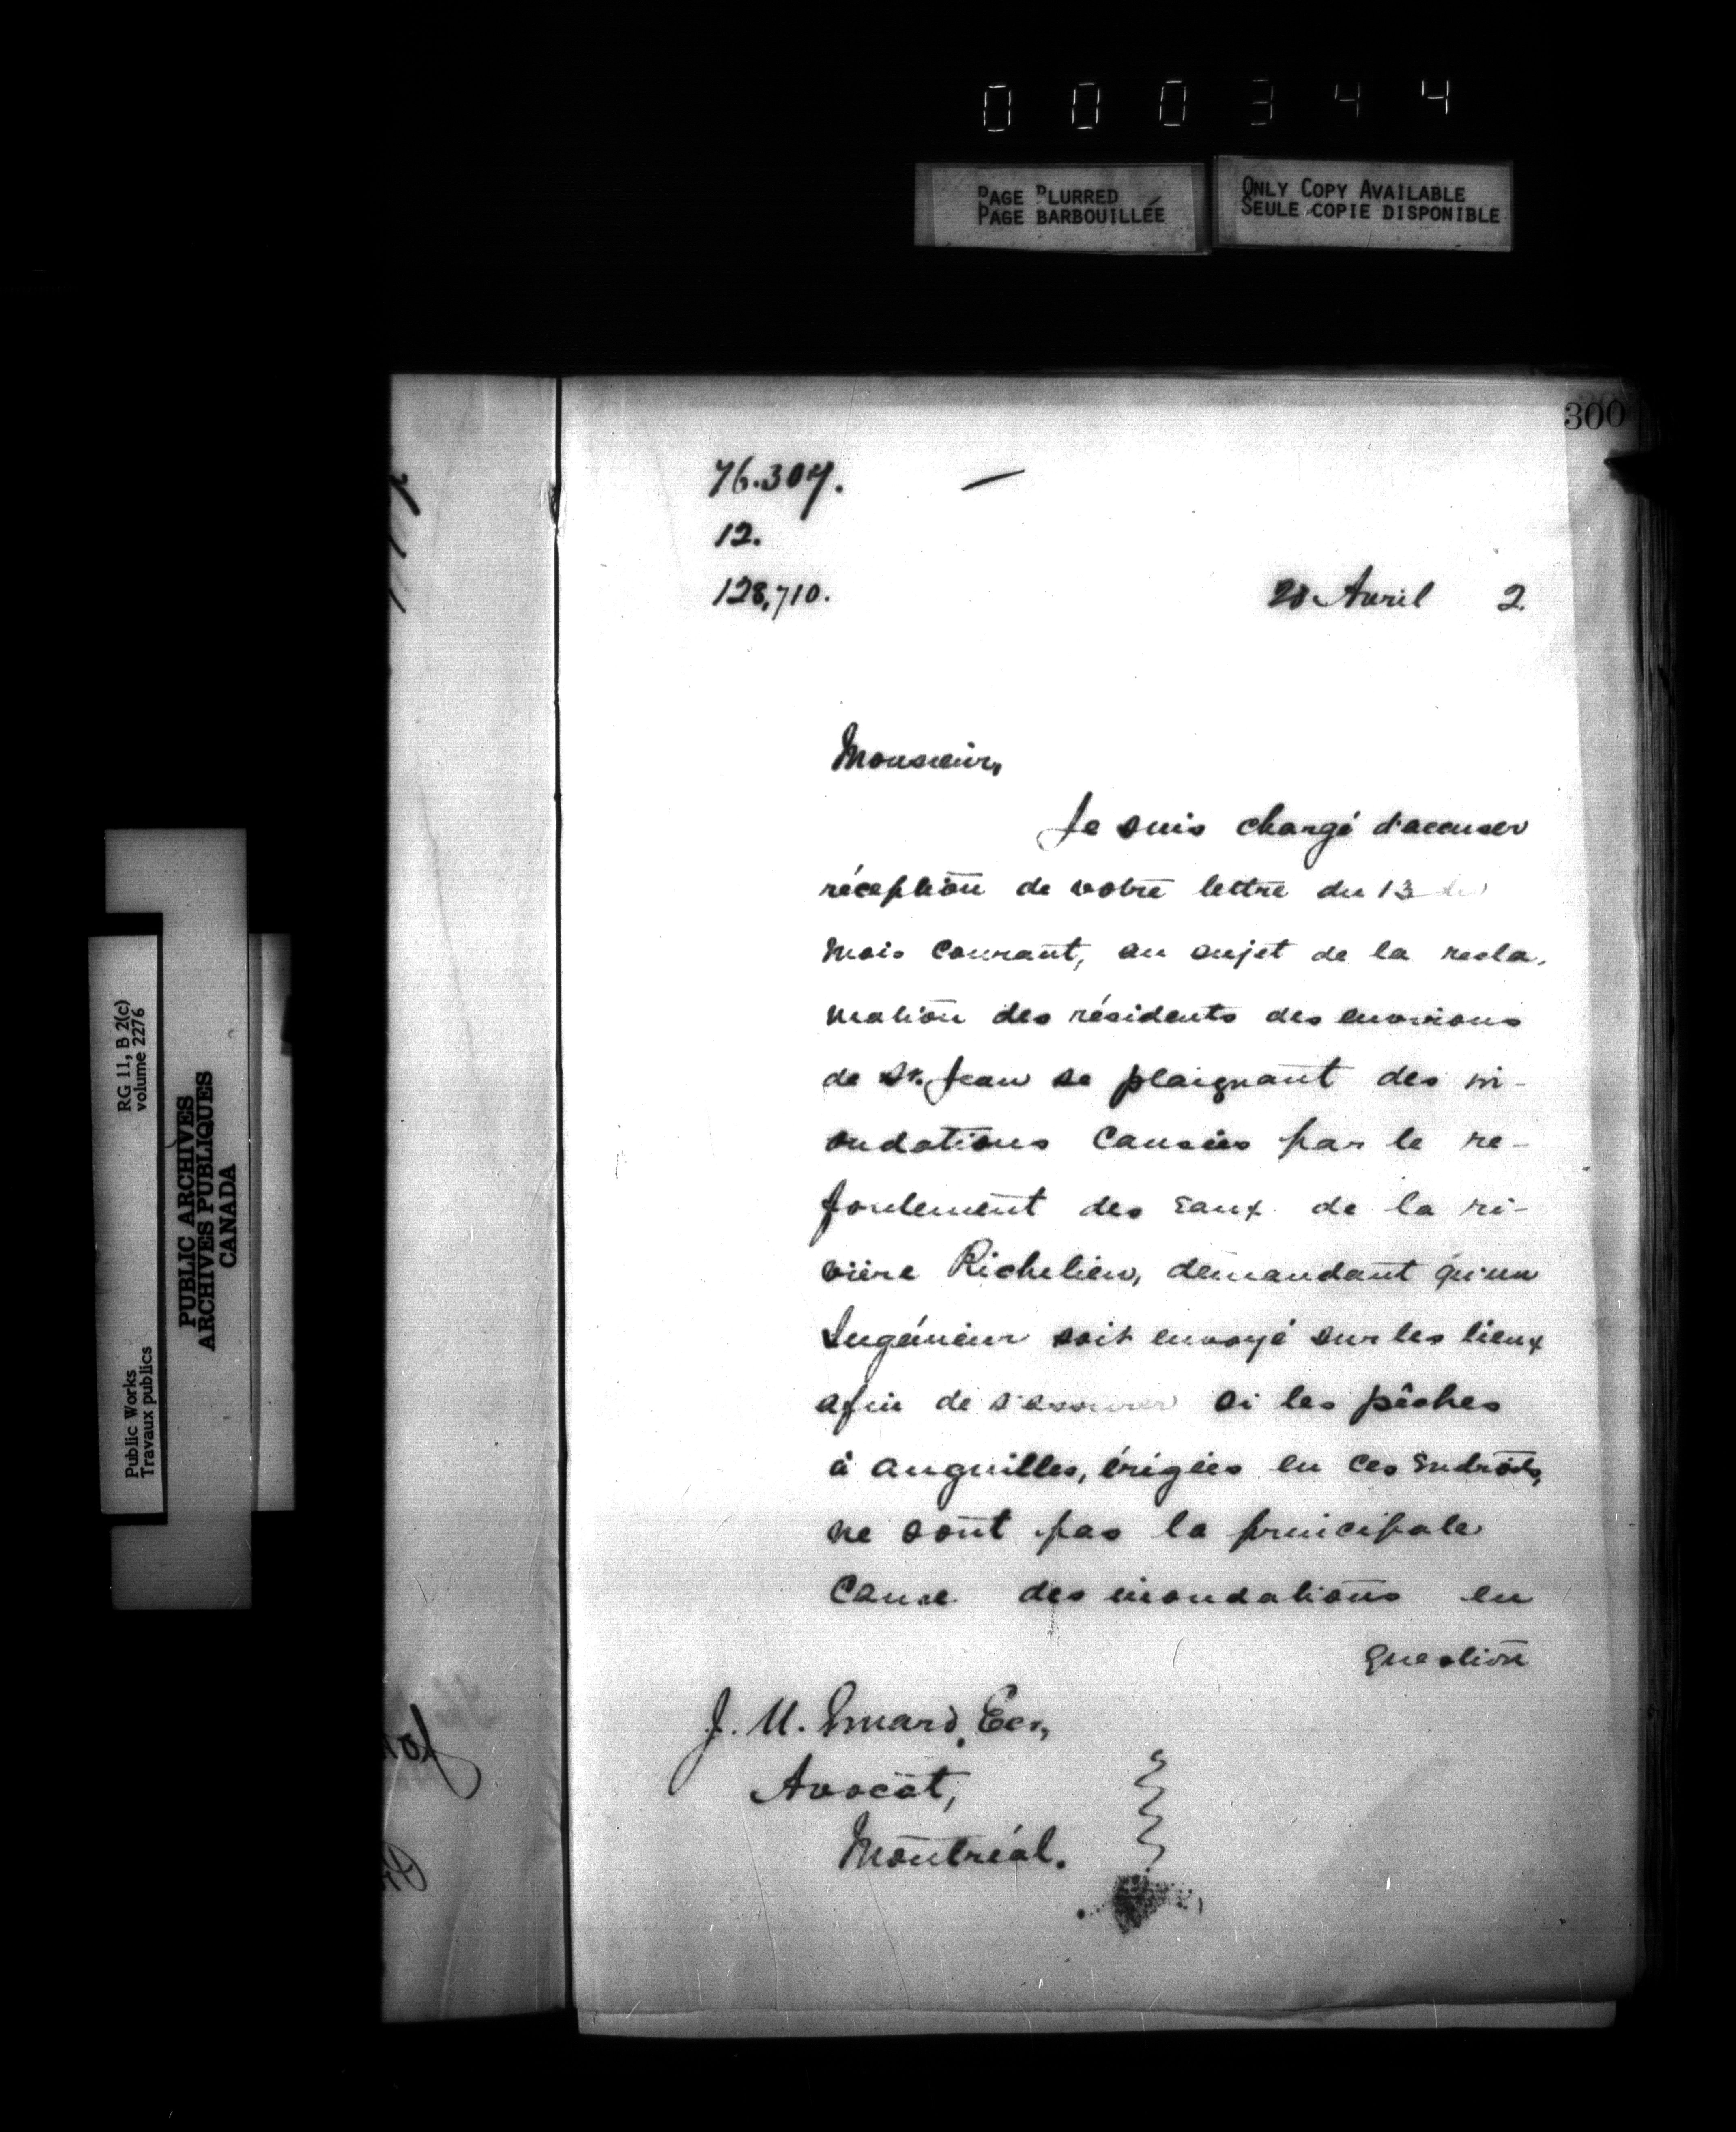 0 0 0 3 4 4
PAGE BLURRED
PAGE BARBOUILLÉE
ONLY COPY AVAILABLE
SEULE COPIE DISPONIBLE
300
76.307.
12.
128,710.
28 Avril 2.
Monsieur,
Je suis chargé d'accuser
réception de votre lettre du 13 du
mois courant, au sujet de la recla-
mation des résidents des environs
de St. Jean se plaignant des in-
ondations causées par le re-
foulement des eaux de la ri-
vière Richelieu, demandant qu'un
Ingénieur soit envoyé sur les lieux
afin de s'assurer si les pêches
à anguilles, érigées en ces endroits,
ne sont pas la principale
cause des inondations en
question
J. U. Emard, Ecr,
Avocat,
Montréal.
RG 11, B 2(c)
volume 2276
PUBLIC ARCHIVES
ARCHIVES PUBLIQUES
CANADA
Public Works
Travaux publics